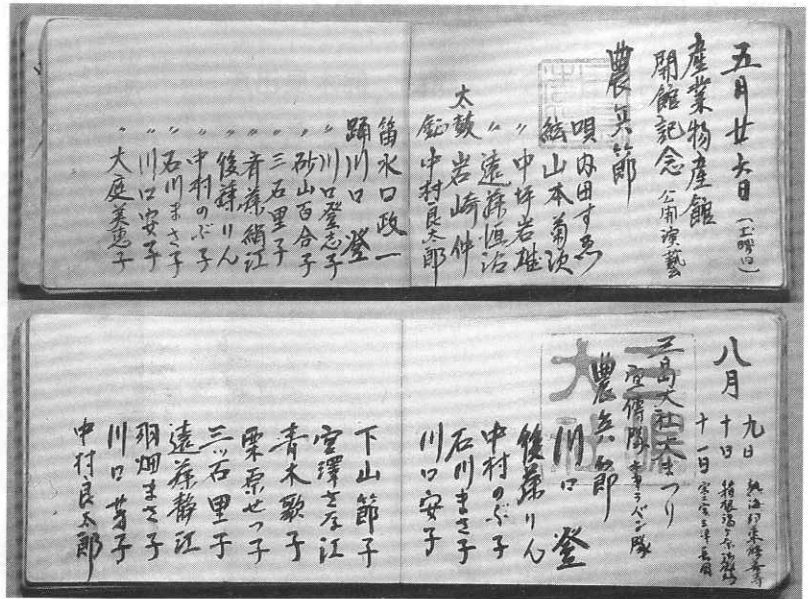 五月廿六日（土曜日）
産業物産館
開館記念 公開演藝
農兵節
唄 内田すゑ
絃 山本菊次
〃 中坪岩雄
〃 遠藤恒治
太鼓 岩崎仲
鉦 中村良太郎
笛 水口政一
踊 川口登
〃 川口登志子
〃 砂山百合子
〃 三石里子
〃 斉藤絹江
〃 後藤りん
〃 中村のぶ子
〃 石川まさ子
〃 川口安子
〃 大庭美恵子
八月
九日
十日
十一日
三島大社大まつり
宣傳隊キャラバン隊
農兵節
川口登
後藤りん
中村のぶ子
石川まさ子
川口安子
下山節子
宮澤さな江
青木歌子
栗原せつ子
三ッ石里子
遠藤静江
羽畑まさ子
川口芳子
中村良太郎